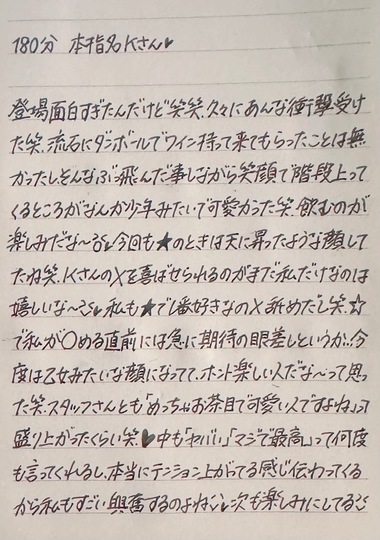 180分 本指名Kさん♥
登場面白すぎたんだけど笑笑.久々にあんな衝撃受け
た笑.流石にダンボールでワイン持って来てもらったことは無
かったし.そんなぶっ飛んだ事しながら笑顔で階段上って
くるところがなんか少年みたいで可愛かった笑.飲むのが
楽しみだな〜 今回も★のときは天に昇ったような顔して
たね笑.KさんのXを喜ばせられるのがまだ私だけなのは
嬉しいな〜 私も★で1番好きなのX舐めだし笑.☆
で私が〇める直前には急に期待の眼差しというか..今
度は乙女みたいな顔になってて.ホント楽しい人だな〜って思っ
た笑.スタッフさんとも「めっちゃお茶目で可愛い人ですよね」って
盛り上がったくらい笑♥中も「ヤバい」「マジで最高」って何度
も言ってくれるし.本当にテンション上がってる感じ伝わってくる
から私もすごい興奮するのよね 次も楽しみにしてる